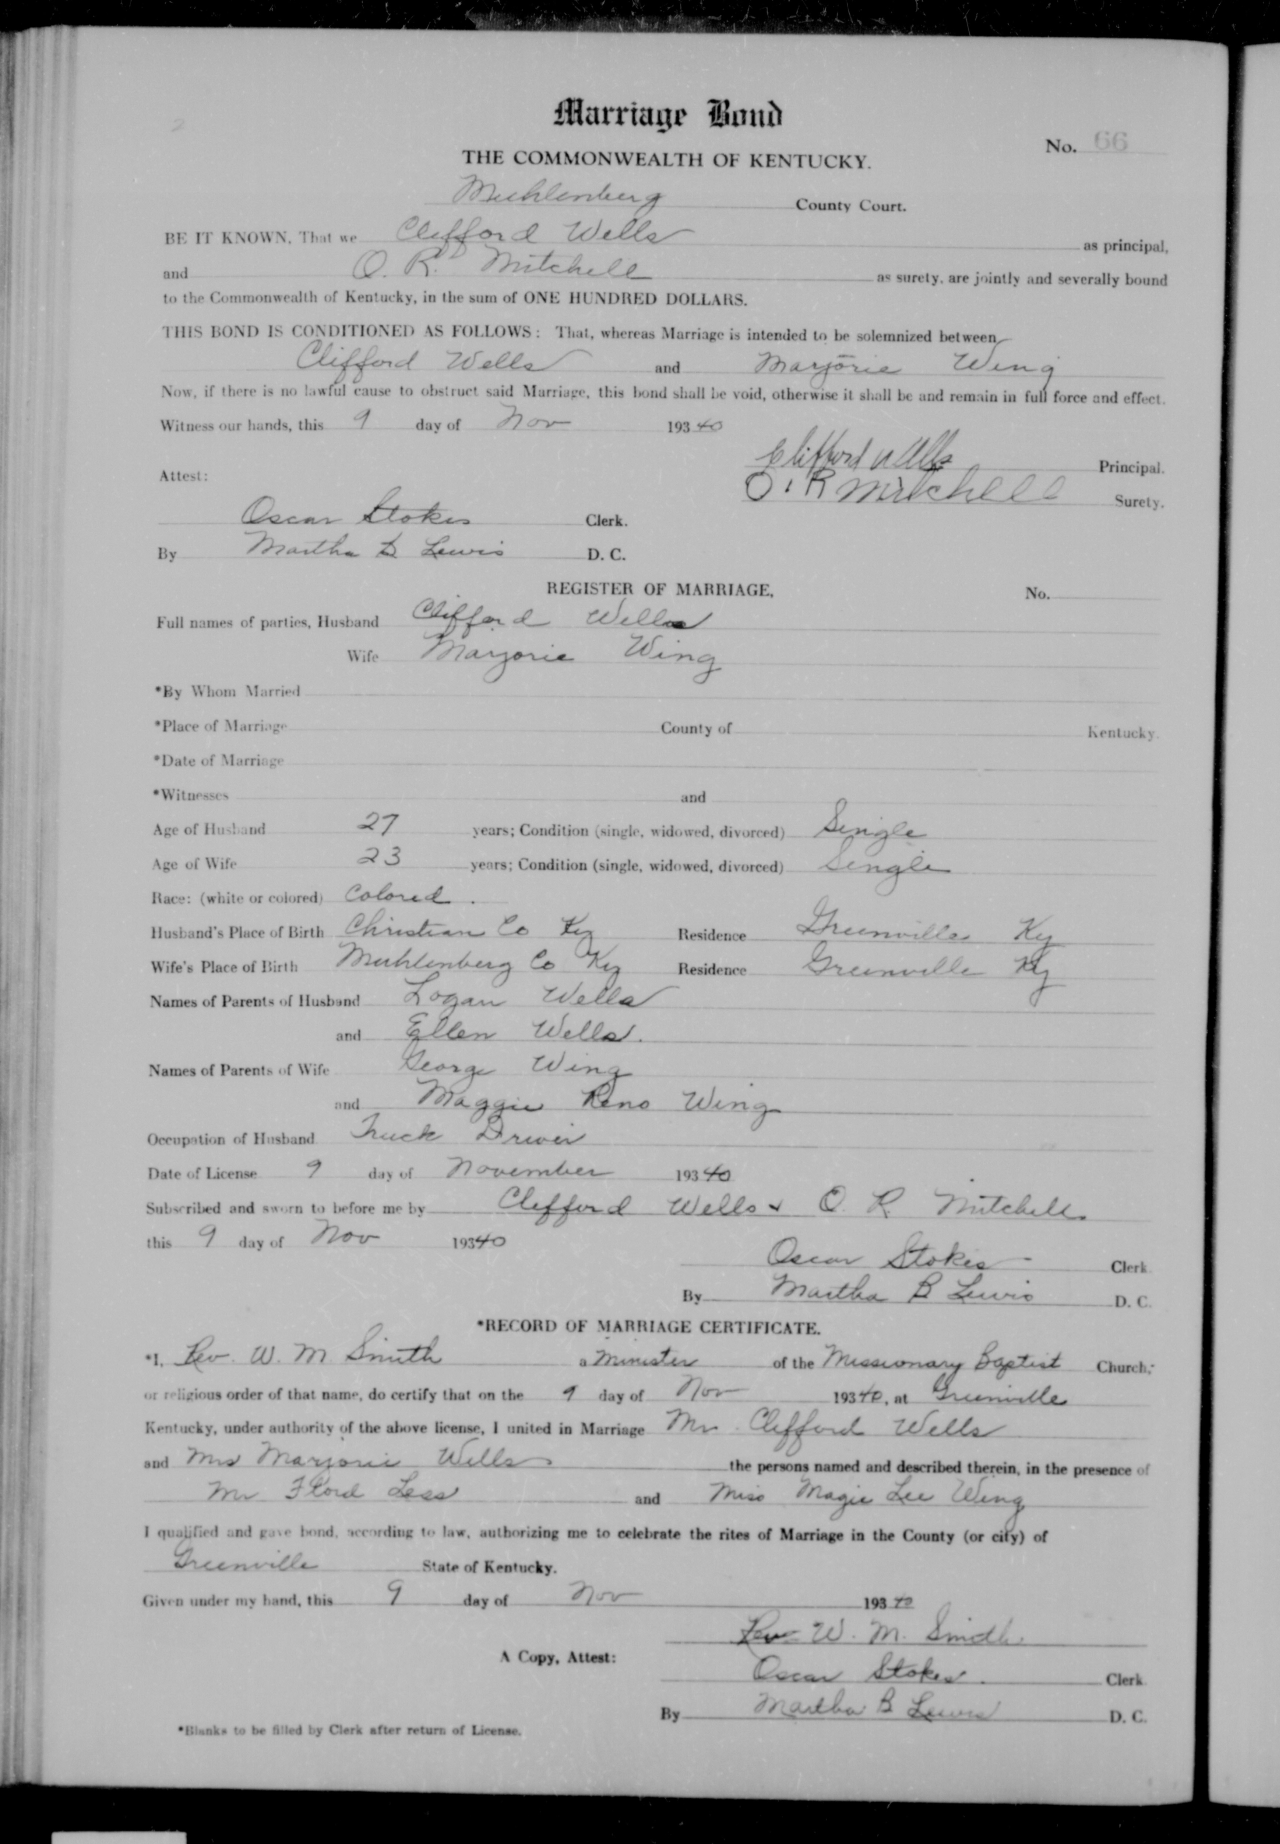 Marriage Bond
No. 66
THE COMMONWEALTH OF KENTUCKY.
Muhlenberg County Court.
BE IT KNOWN, That we Clifford Wells as principal,
and O. R. Mitchell as surety, are jointly and severally bound
to the Commonwealth of Kentucky, in the sum of ONE HUNDRED DOLLARS.
THIS BOND IS CONDITIONED AS FOLLOWS: That, whereas Marriage is intended to be solemnized between
Clifford Wells and Marjorie Wing
Now, if there is no lawful cause to obstruct said Marriage, this bond shall be void, otherwise it shall be and remain in full force and effect.
Witness our hands, this 9 day of Nov 19340
Clifford Wells Principal.
Attest:
O. R Mitchell Surety.
Oscar Stokes Clerk.
By Martha B Lewis D. C.
REGISTER OF MARRIAGE, No.
Full names of parties, Husband Clifford Wells
Wife Marjorie Wing
*By Whom Married
*Place of Marriage County of Kentucky.
*Date of Marriage
*Witnesses and
Age of Husband 27 years; Condition (single, widowed, divorced) Single
Age of Wife 23 years; Condition (single, widowed, divorced) Single
Race: (white or colored) Colored.
Husband's Place of Birth Christian Co Ky Residence Greenville Ky
Wife's Place of Birth Muhlenberg Co Ky Residence Greenville Ky
Names of Parents of Husband Logan Wells
and Ellen Wells.
Names of Parents of Wife George Wing
and Maggie Reno Wing
Occupation of Husband Truck Driver
Date of License 9 day of November 19340
Subscribed and sworn to before me by Clifford Wells & O. R Mitchell
this 9 day of Nov 19340
Oscar Stokes Clerk
By Martha B Lewis D. C.
*RECORD OF MARRIAGE CERTIFICATE.
*I, Rev. W. M Smith a Minister of the Missionary Baptist Church,
or religious order of that name, do certify that on the 9 day of Nov 19340, at Greenville
Kentucky, under authority of the above license, I united in Marriage Mr. Clifford Wells
and Mrs Marjorie Wells the persons named and described therein, in the presence of
Mr Flord Less and Miss Magie Lee Wing
I qualified and gave bond, according to law, authorizing me to celebrate the rites of Marriage in the County (or city) of
Greenville State of Kentucky.
Given under my hand, this 9 day of Nov 19340
Rev W. M. Smith
A Copy, Attest:
Oscar Stokes. Clerk
By Martha B Lewis D. C.
*Blanks to be filled by Clerk after return of License.